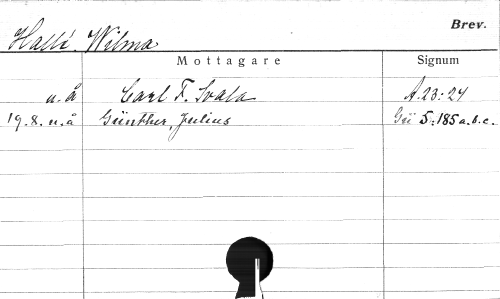 Brev.
Hallé, Wilma
Mottagare Signum
u.å Carl F. Svala A.23:24
19.8.u.å Günther, Julius Gü 5:185 a.b.c.